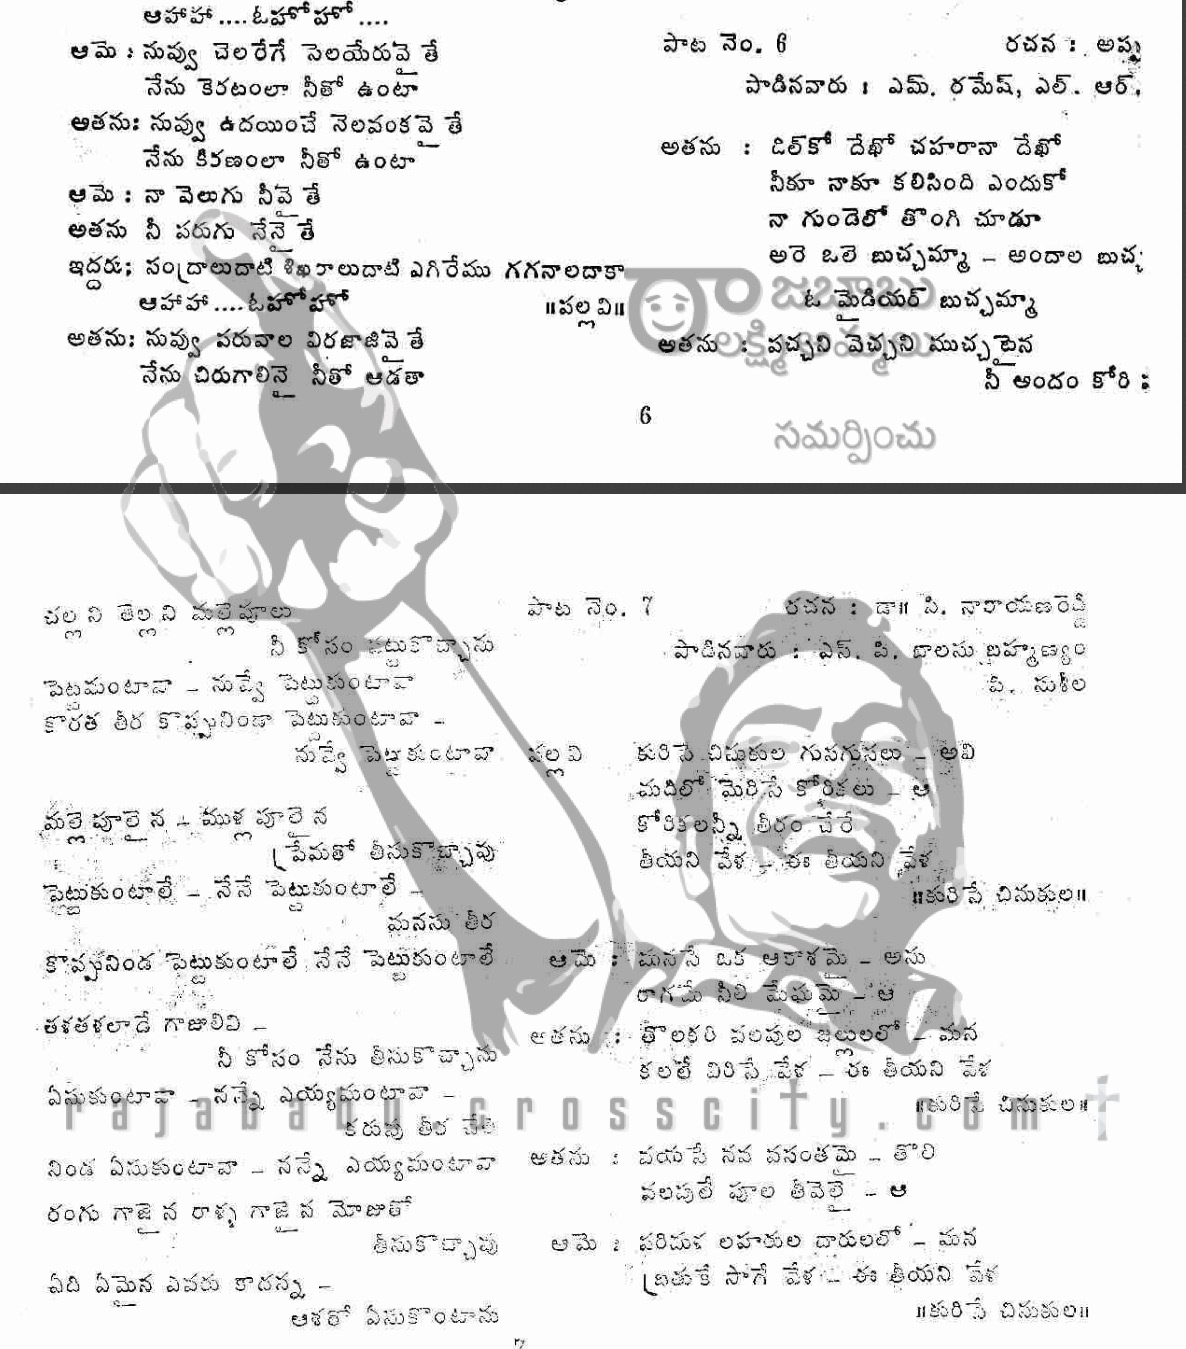 ఆహాహా....ఓహోహో....
ఆమె : నువ్వు చెలరేగే సెలయేరువై తే
నేను కెరటంలా నీతో ఉంటా
అతను: నువ్వు ఉదయించే నెలవంకవై తే
నేను కిరణంలా నీతో ఉంటా
ఆమె : నా వెలుగు నీవై తే
అతను నీ పరుగు నేనై తే
ఇద్దరు; సంద్రాలుదాటి శిఖరాలుదాటి ఎగిరేము గగనాలదాకా
ఆహాహా....ఓహోహో ॥పల్లవి॥
అతను: నువ్వు పరువాల విరజాజివై తే
నేను చిరుగాలినై నీతో ఆడతా
పాట నెం. 6 రచన : అప్ప
పాడినవారు : ఎమ్. రమేష్, ఎల్. ఆర్.
అతను : డిల్‌కో దేఖో చహరానా దేఖో
నీకూ నాకూ కలిసింది ఎందుకో
నా గుండెలో తొంగి చూడూ
అరె ఒలె బుచ్చమ్మా – అందాల బుచ్చ
ఓ మైడియర్ బుచ్చమ్మా
అతను : పచ్చని వెచ్చని ముచ్చటైన
నీ అందం కోరి :
6
రాజబాబు
లక్ష్మి ఖమ్మలు
సమర్పించు
చల్లని తెల్లని మల్లెపూలు
నీ కోసం పట్టుకొచ్చాను
పెట్టమంటావా – నువ్వే పెట్టుకుంటావా
కొరత తీర కొప్పునిండా పెట్టుకుంటావా –
నువ్వే పెట్టుకుంటావా
మల్లె పూలైన – ముళ్ల పూలైన
ప్రేమతో తీసుకొచ్చావు
పెట్టుకుంటాలే – నేనే పెట్టుకుంటాలే –
మనసు తీర
కొప్పునిండ పెట్టుకుంటాలే నేనే పెట్టుకుంటాలే
తళతళలాడే గాజులివి –
నీ కోసం నేను తీసుకొచ్చాను
ఏసుకుంటావా – నన్నే ఎయ్యమంటావా –
కరువు తీర చేతి
నిండ ఏసుకుంటావా – నన్నే ఎయ్యమంటావా
రంగు గాజైన రాళ్ళ గాజైన మోజుతో
తీసుకొచ్చావు
ఏది ఏమైన ఎవరు కాదన్న –
ఆశతో ఏసుకొంటాను
పాట నెం. 7 రచన : డా॥ సి. నారాయణరెడ్డి
పాడినవారు : ఎస్. పి. బాలసుబ్రహ్మణ్యం
పి. సుశీల
పల్లవి కురిసే చినుకుల గుసగుసలు – అవి
మదిలో మెరిసే కోరికలు – ఆ
కోరికలన్నీ తీరం చేరే
తీయని వేళ – ఈ తీయని వేళ
॥కురిసే చినుకుల॥
ఆమె : మనసే ఒక ఆకాశమై – అను
రాగమే నీలి మేఘమై – ఆ
అతను : తొలకరి వలపుల జల్లులలో – మన
కలలే విరిసే వేళ – ఈ తీయని వేళ
॥కురిసే చినుకుల॥
rajababu.crosscity.com
అతను : వయసే నవ వసంతమై – తొలి
వలపులే పూల తీవెలై – ఆ
ఆమె : పరిమళ లహరుల దారులలో – మన
బ్రతుకే సాగే వేళ – ఈ తీయని వేళ
॥కురిసే చినుకుల॥
7